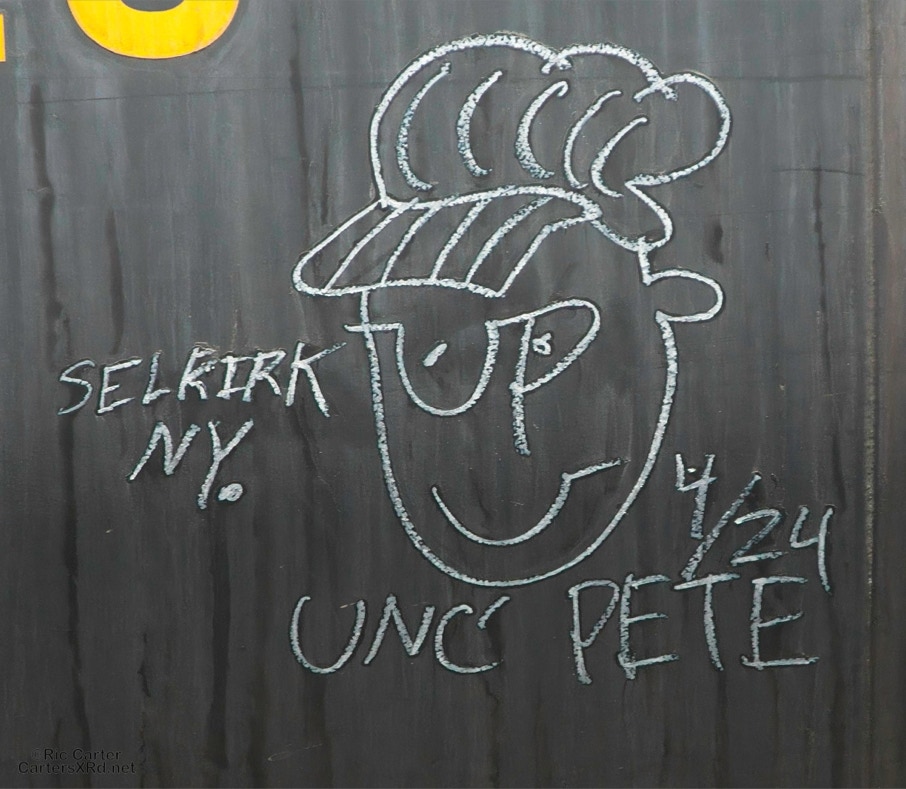 SELKIRK
NY.
UP
4/24
UNC PETE
©Ric Carter
CartersXRd.net